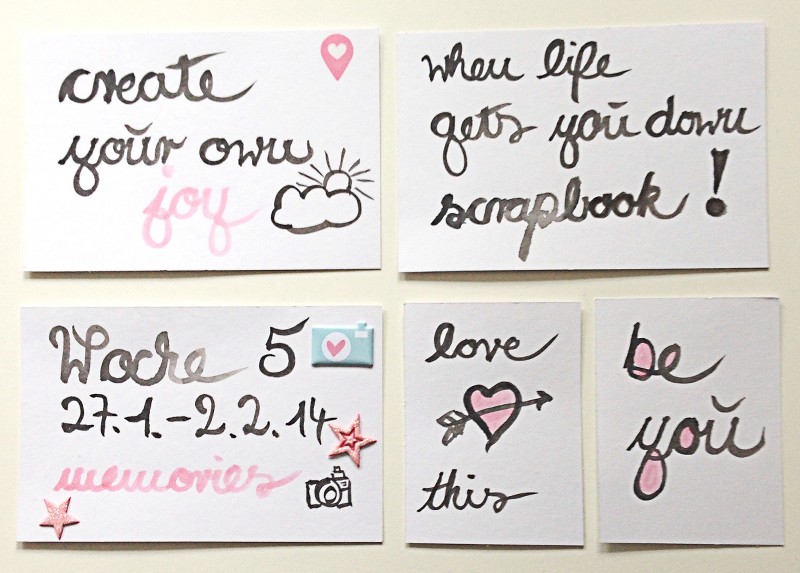 create
your own
joy
when life
gets you down
scrapbook!
Woche 5
27.1.-2.2.14
memories
love
this
be
you